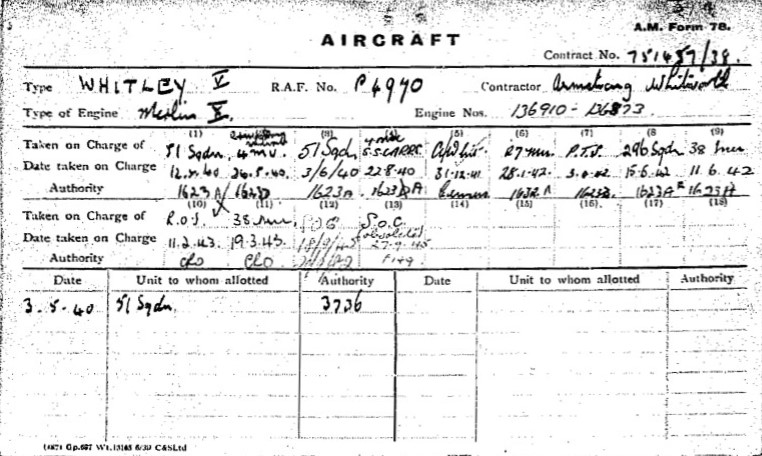 A.M. Form 78.
AIRCRAFT
Contract No. 751457/38.
Type WHITLEY V R.A.F. No. P4970 Contractor Armstrong Whitworth
Type of Engine Merlin X. Engine Nos. 136910 - 136873
(1) (3) (5) (6) (7) (8 (9)
Taken on Charge of 51 Sqdn. 4 M.U. 51 Sqdn 27 mu. P.T.S. 296 Sqdn 38 mu
Date taken on Charge 12.5.40 26.5.40. 3/6/40 22.8.40 31.12.41 28.1.42. 3.2.42 15.6.42 11.6.42
Authority 1623A/ 1623D 1623A 1623DA 1632A 1623D. 1623AE 1623A
(10) (11) (12) (13) (14) (15) (16) (17) (18)
Taken on Charge of R.O.S. 38 mu. S.O.C.
Date taken on Charge 11.2.43. 19.3.43. 18/9/45 27.9.45
Authority CRO CRO
Date Unit to whom allotted Authority Date Unit to whom allotted Authority
3.5.40 51 Sqdn. 3736
Gp.687 Wt.13165 6/39 C&SLtd